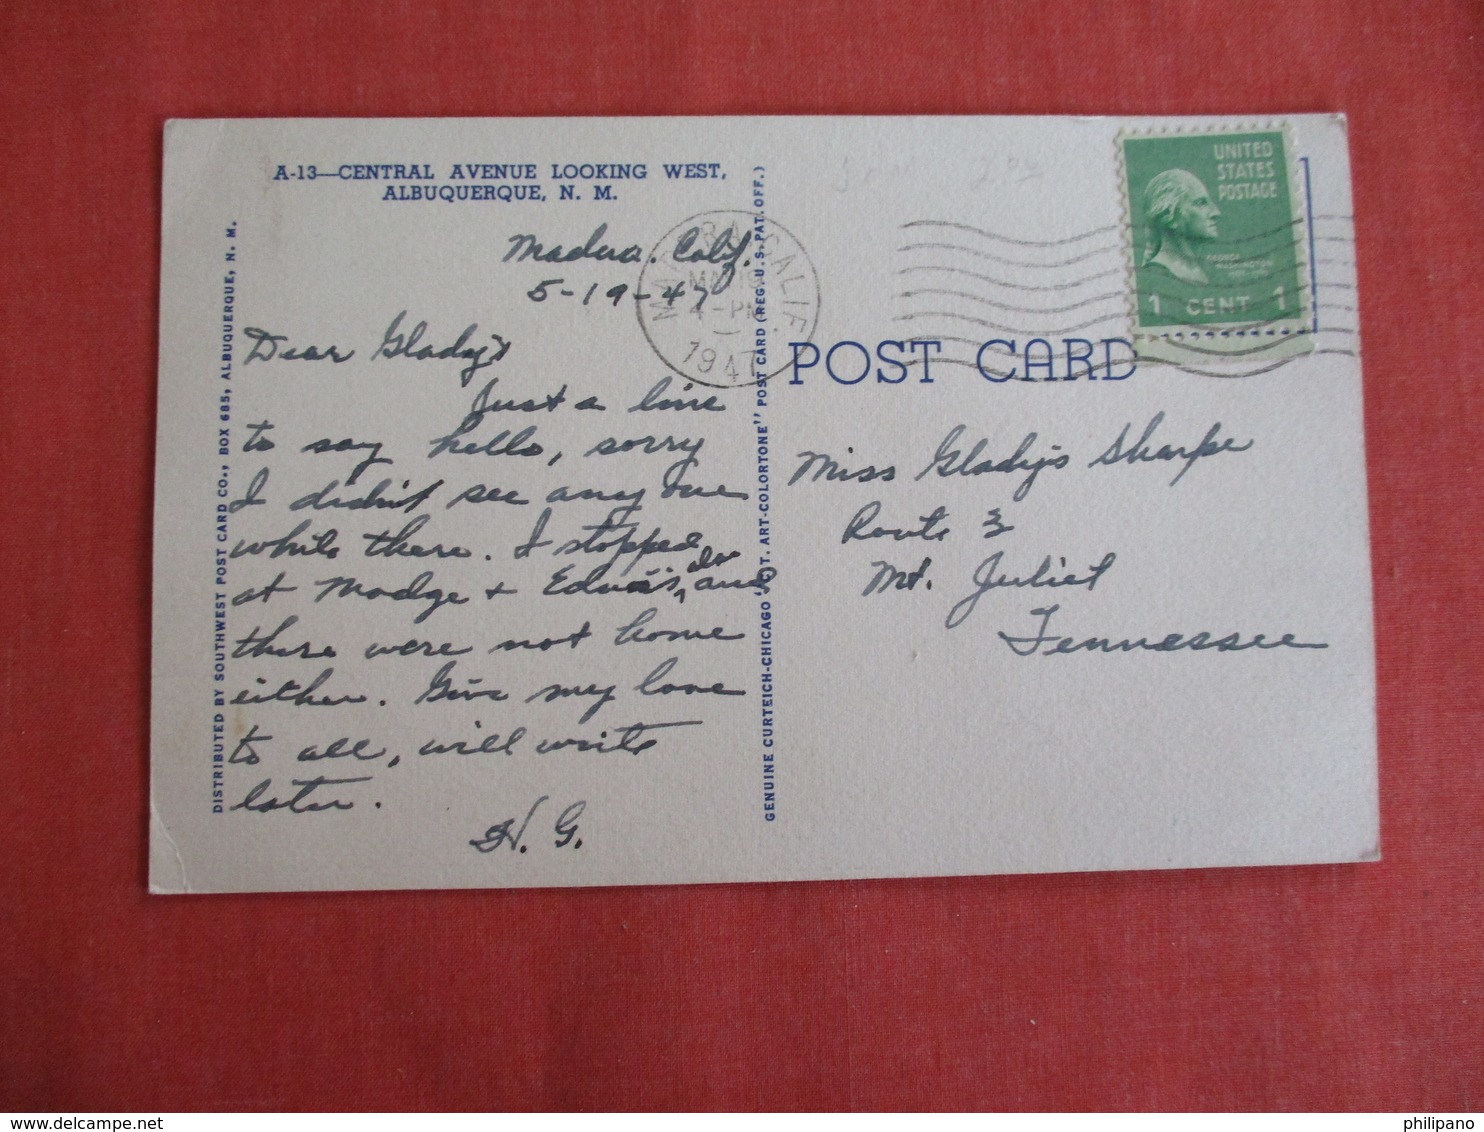 A-13—CENTRAL AVENUE LOOKING WEST,
ALBUQUERQUE, N. M.
Madera. Calif.
5-19-47
Dear Gladys
Just a line
to say hello, sorry
I didn't see any one
while there. I stopped
at Madge + Edna's, and
there were not home
either. Give my love
to all, will write
later.
H. G.
DISTRIBUTED BY SOUTHWEST POST CARD CO., BOX 685, ALBUQUERQUE, N. M.
GENUINE CURTEICH-CHICAGO "C. T. ART-COLORTONE" POST CARD (REG. U. S. PAT. OFF.)
MADERA, CALIF.
MAY 19
4-PM
1947
UNITED
STATES
POSTAGE
GEORGE
WASHINGTON
1 CENT 1
POST CARD
Miss Gladys Sharpe
Route 3
Mt. Juliet
Tennessee
philipano